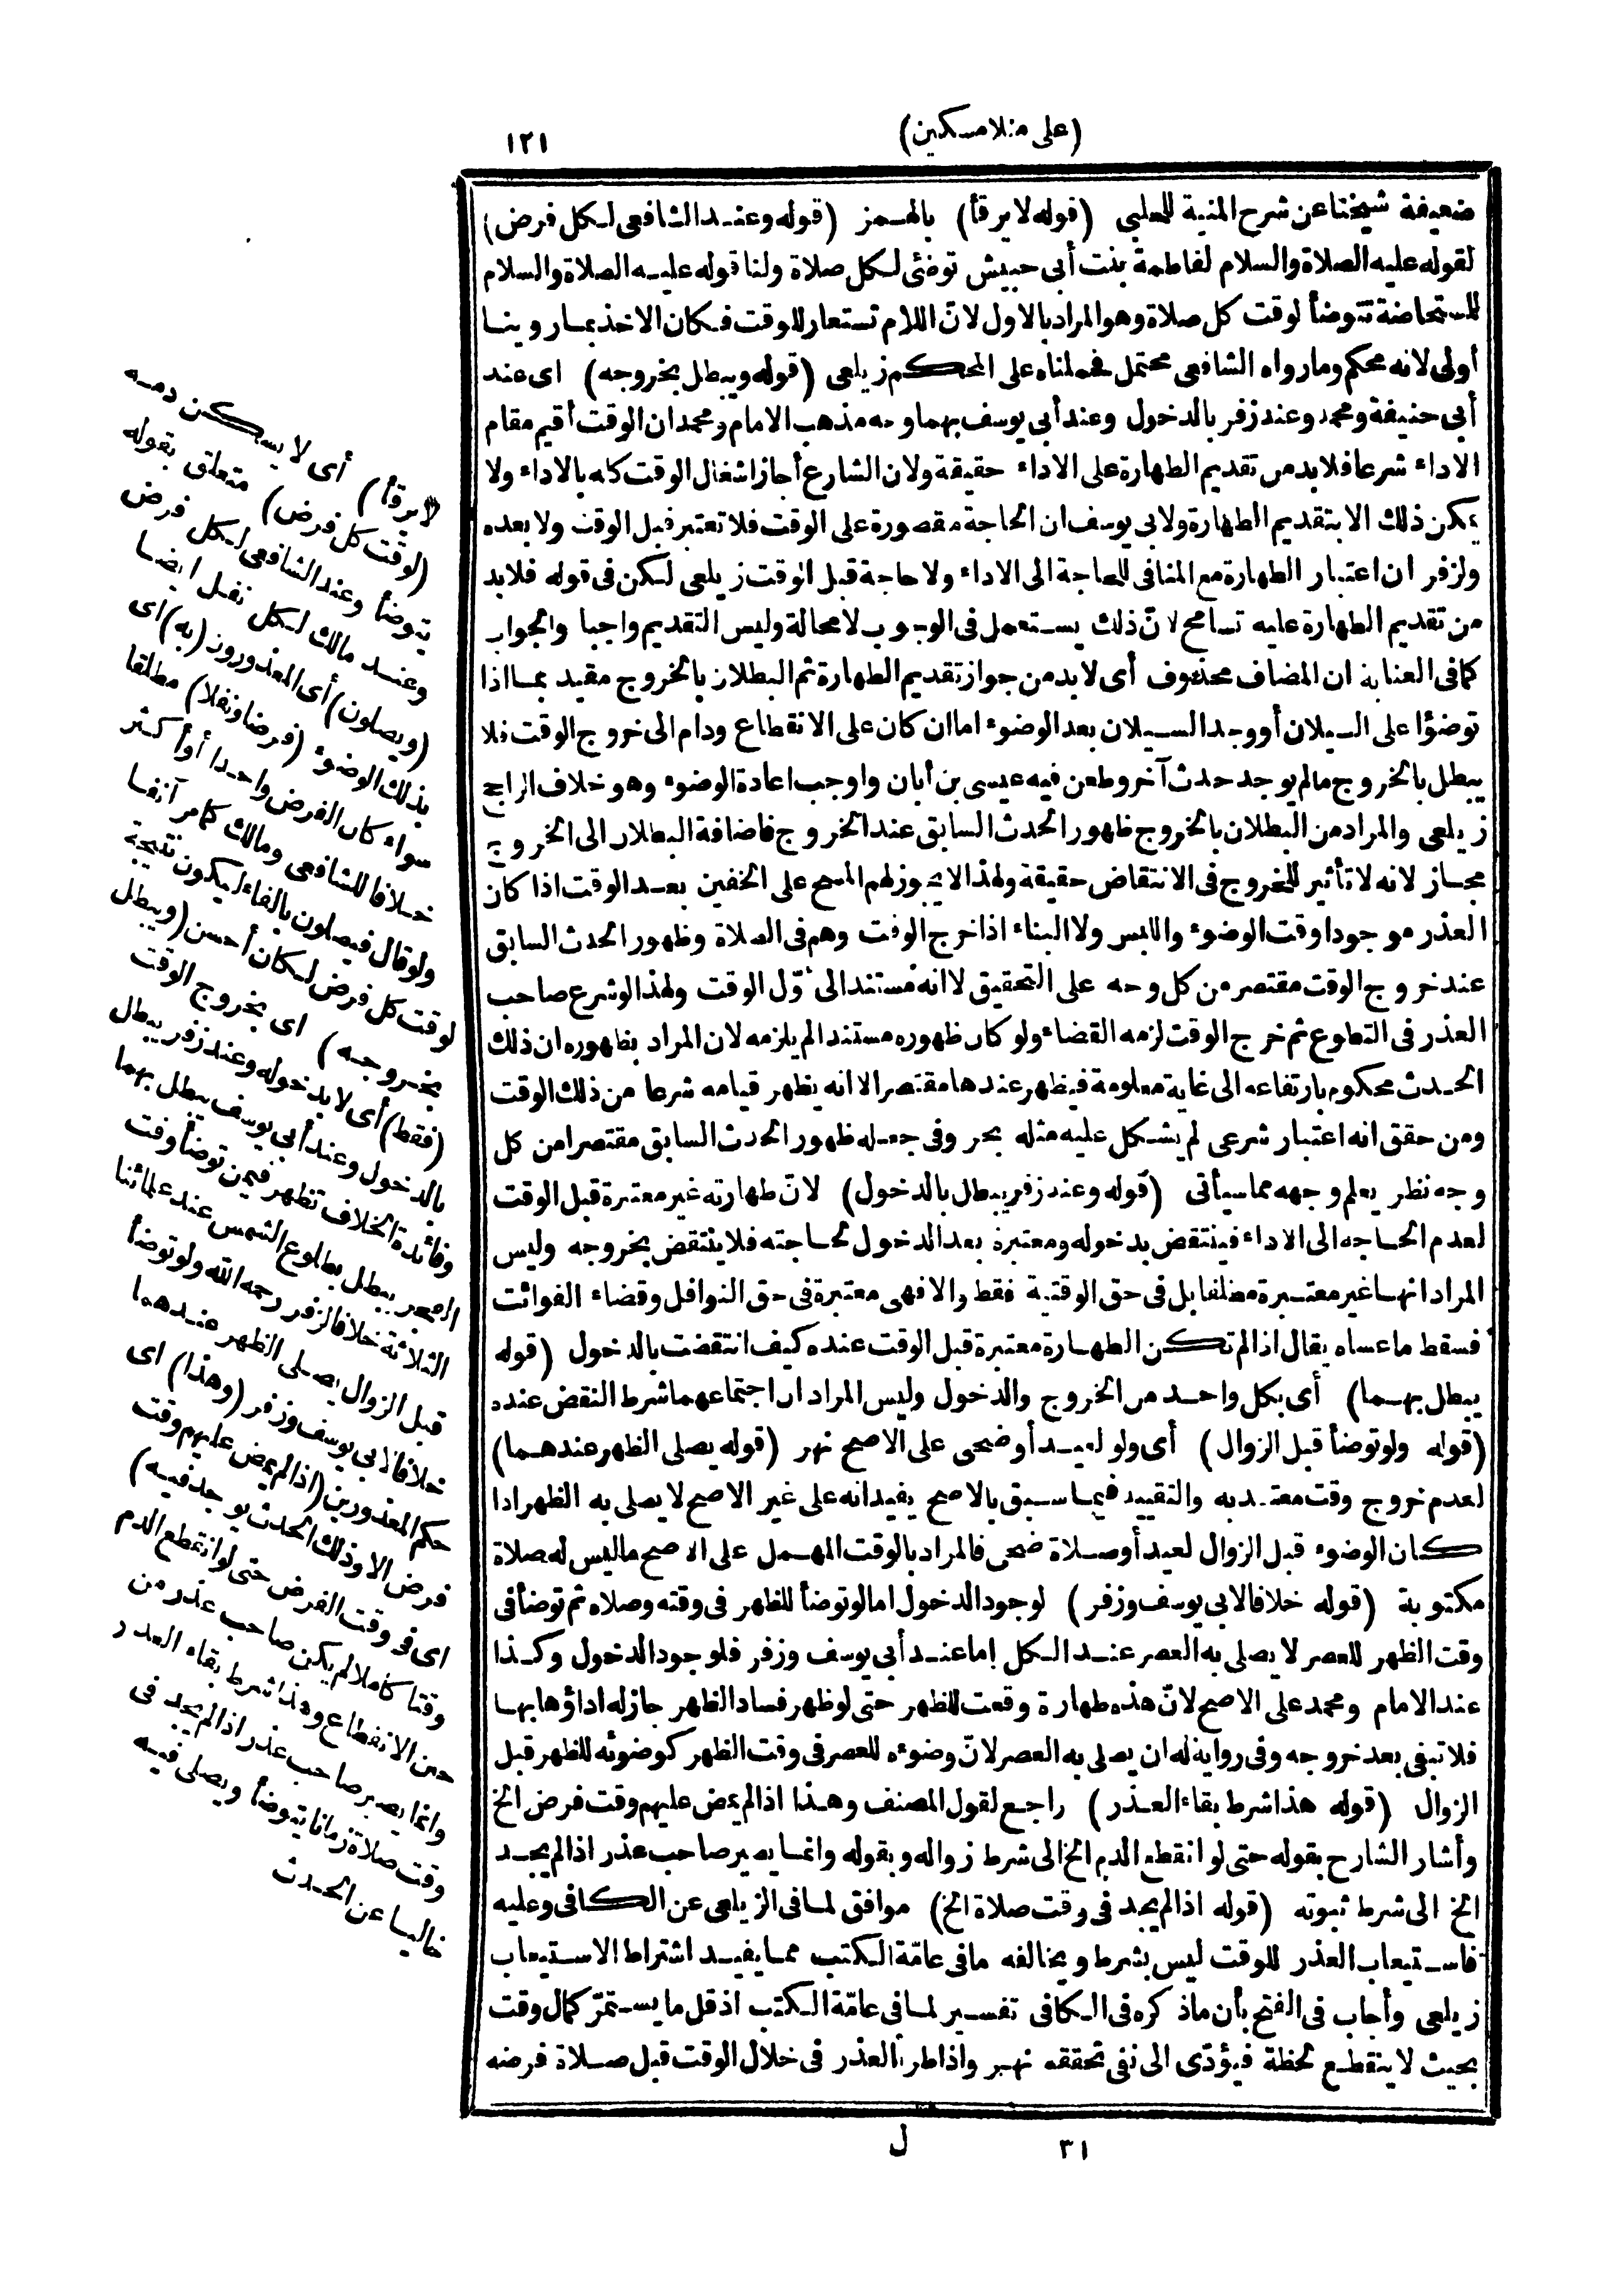 (على منلا مسكين)
١٢١
ضعيفة شيخنا عن شرح المنية للحلبي (قوله لا يرقأ) بالهمز (قوله وعند الشافعى لكل فرض)
لقوله عليه الصلاة والسلام لفاطمة بنت أبى حبيش توضئى لكل صلاة ولنا قوله عليه الصلاة والسلام
المستحاضة تتوضأ لوقت كل صلاة وهو المراد بالاول لانّ اللام تستعار للوقت فكان الاخذ بما روينا
أولى لانه محكم وما رواه الشافعى محتمل فحملناه على المحكم زيلعى (قوله ويبطل بخروجه) اى عند
أبى حنيفة ومحمد وعند زفر بالدخول وعند أبى يوسف بهما وجه مذهب الامام ومحمد ان الوقت أقيم مقام
الاداء شرعا فلابد من تقديم الطهارة على الاداء حقيقة ولان الشارع أجاز اشغال الوقت كله بالاداء ولا
يمكن ذلك الا بتقديم الطهارة ولابى يوسف ان الحاجة مقصورة على الوقت فلا تعتبر قبل الوقت ولا بعده
ولزفر ان اعتبار الطهارة مع المنافى للحاجة الى الاداء ولا حاجة قبل الوقت زيلعى لكن فى قوله فلابد
من تقديم الطهارة عليه تسامح لانّ ذلك يستعمل فى الوجوب لا محالة وليس التقديم واجبا والجواب
كما فى العناية ان المضاف محذوف أى لابد من جواز تقديم الطهارة ثم البطلان بالخروج مقيد بما اذا
توضؤا على السيلان أو وجد السيلان بعد الوضوء اما ان كان على الانقطاع ودام الى خروج الوقت فلا
يبطل بالخروج مالم يوجد حدث آخر وطعن فيه عيسى بن أبان واوجب اعادة الوضوء وهو خلاف الراجح
زيلعى والمراد من البطلان بالخروج ظهور الحدث السابق عند الخروج فاضافة البطلان الى الخروج
مجاز لانه لا تأثير للخروج فى الانتقاض حقيقة ولهذا لا يجوز لهم المسح على الخفين بعد الوقت اذا كان
العذر موجودا وقت الوضوء واللبس ولا البناء اذا خرج الوقت وهم فى الصلاة وظهور الحدث السابق
عند خروج الوقت مقتصر من كل وجه على التحقيق لا انه مستند الى أوّل الوقت ولهذا لو شرع صاحب
العذر فى التطوع ثم خرج الوقت لزمه القضاء ولو كان ظهوره مستندا لم يلزمه لان المراد بظهوره ان ذلك
الحدث محكوم بارتفاعه الى غاية معلومة فيظهر عندها مقتصرا لا انه يظهر قيامه شرعا من ذلك الوقت
ومن حقق انه اعتبار شرعى لم يشكل عليه مثله بحر وفى جعله ظهور الحدث السابق مقتصرا من كل
وجه نظر يعلم وجهه مما سيأتى (قوله وعند زفر يبطل بالدخول) لانّ طهارته غير معتبرة قبل الوقت
لعدم الحاجه الى الاداء فينتقض بدخوله ومعتبرة بعد الدخول لحاجته فلا ينتقض بخروجه وليس
المراد انها غير معتبرة مطلقا بل فى حق الوقتية فقط والا فهى معتبرة فى حق النوافل وقضاء الفوائت
فسقط ما عساه يقال اذا لم تكن الطهارة معتبرة قبل الوقت عنده كيف انتقضت بالدخول (قوله
يبطل بهما) أى بكل واحد من الخروج والدخول وليس المراد ان اجتماعهما شرط النقض عنده
(قوله ولو توضأ قبل الزوال) أى ولو لعيد أو ضحى على الاصح نهر (قوله يصلى الظهر عندهما)
لعدم خروج وقت معتد به والتقييد فيما سبق بالاصح يفيد انه على غير الاصح لا يصلى به الظهر اذا
كان الوضوء قبل الزوال لعيد أو صلاة ضحى فالمراد بالوقت المهمل على الاصح ما ليس له صلاة
مكتوبة (قوله خلافا لابى يوسف وزفر) لوجود الدخول اما لو توضأ للظهر فى وقته وصلاه ثم توضأ فى
وقت الظهر للعصر لا يصلى به العصر عند الكل اما عند أبى يوسف وزفر فلوجود الدخول وكذا
عند الامام ومحمد على الاصح لانّ هذه طهارة وقعت للظهر حتى لو ظهر فساد الظهر جاز له اداؤها بها
فلا تبقى بعد خروجه وفى رواية له ان يصلى به العصر لانّ وضوءه للعصر فى وقت الظهر كوضوئه للظهر قبل
الزوال (قوله هذا شرط بقاء العذر) راجع لقول المصنف وهذا اذا لم يمض عليهم وقت فرض الخ
وأشار الشارح بقوله حتى لو انقطع الدم الخ الى شرط زواله وبقوله وانما يصير صاحب عذر اذا لم يجد
الخ الى شرط ثبوته (قوله اذا لم يجد فى وقت صلاة الخ) موافق لما فى الزيلعى عن الكافى وعليه
فاستيعاب العذر للوقت ليس بشرط ويخالفه ما فى عامّة الكتب مما يفيد اشتراط الاستيعاب
زيلعى وأجاب فى الفتح بأن ما ذكره فى الكافى تفسير لما فى عامّة الكتب اذ قل ما يستمرّ كمال وقت
بحيث لا ينقطع لحظة فيؤدّى الى نفى تحققه نهر واذا طرأ العذر فى خلال الوقت قبل صلاة فرضه
لا يرقأ) أى لا يسكن دمه
(لوقت كل فرض) متعلق بقوله
يتوضأ وعند الشافعى لكل فرض
وعند مالك لكل نفل ايضا
(ويصلون) أى المعذورون (به) اى
بذلك الوضوء (فرضا ونفلا) مطلقا
سواء كان الفرض واحدا أو أكثر
خلافا للشافعى ومالك كما مر آنفا
ولو قال فيصلون بالفاء ليكون نتيجة
لوقت كل فرض لكان أحسن (ويبطل
بخروجه) اى بخروج الوقت
(فقط) أى لا بدخوله وعند زفر يبطل
بالدخول وعند أبى يوسف يبطل بهما
وفائدة الخلاف تظهر فيمن توضأ وقت
الفجر يبطل بطلوع الشمس عند علمائنا
الثلاثة خلافا لزفر رحمه الله ولو توضأ
قبل الزوال يصلى الظهر عندهما
خلافا لابى يوسف وزفر (وهذا) اى
حكم المعذورين (اذا لم يمض عليهم وقت
فرض الا وذلك الحدث يوجد فيه)
اى فى وقت الفرض حتى لو انقطع الدم
وقتا كاملا لم يكن صاحب عذر من
حين الانقطاع وهذا شرط بقاء العذر
وانما يصير صاحب عذر اذا لم يجد فى
وقت صلاة زمانا يتوضأ ويصلى فيه
خاليا عن الحدث
٣١
ل